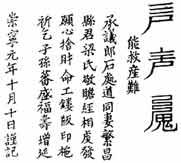 能救産難
承議郎石處道同妻繁昌
縣君梁氏敬覩經相廣發
願心捨財命工鏤版印施
祈乞子孫蕃盛福壽增延
崇寧元年十月十日謹記